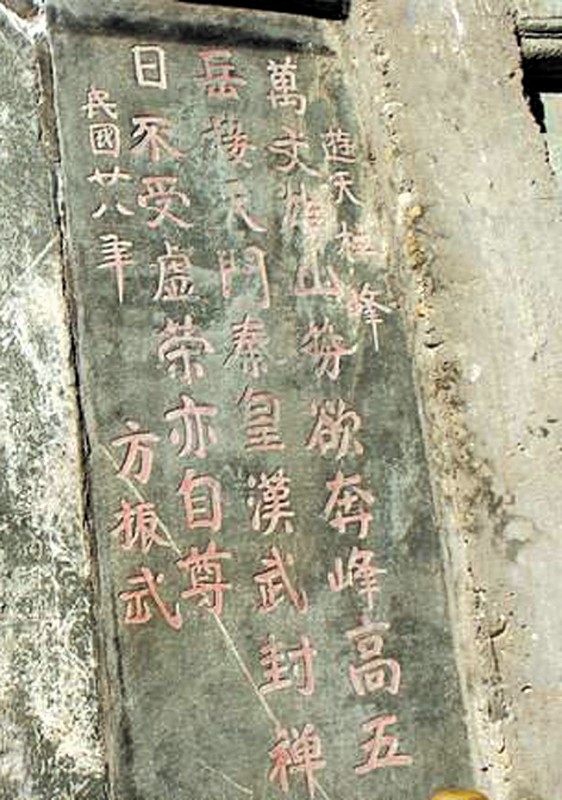 遊天峰
萬丈山势欲奔峰高五
岳接天門秦皇漢武封禅
日不受虛榮亦自尊
民國廿八年 方振武